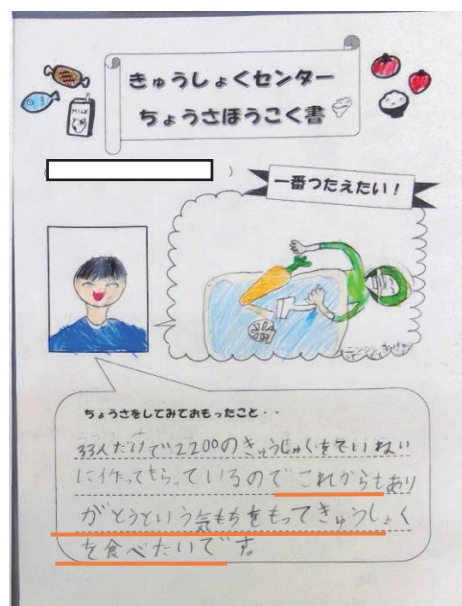 きゅうしょくセンター
ちょうさほうこく書
MILK
一番つたえたい!
ちょうさをしてみておもったこと・・
33人だけで2200のきゅうしょくをていねい
に作ってもらっているのでこれからもあり
がとうという気もちをもってきゅうしょく
を食べたいです。